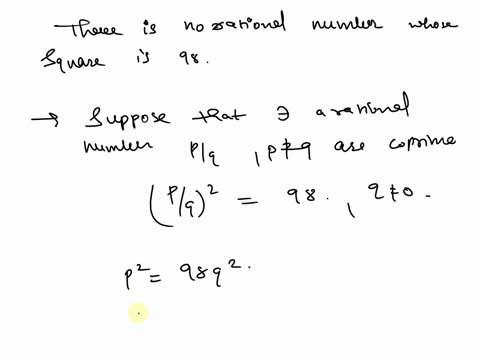 There is no rational number whose
square is 98.
→ Suppose that ∃ a rational
number p/q , p & q are coprime
(p/q)² = 98 , q ≠ 0.
p² = 98q².